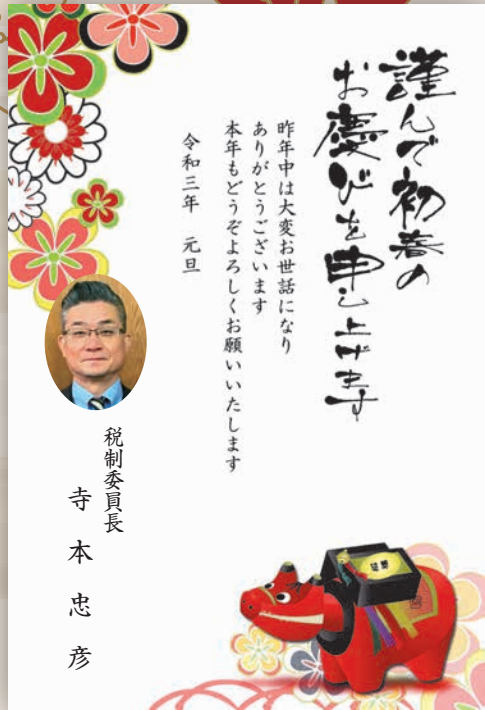 謹んで初春の
お慶びを申し上げます
昨年中は大変お世話になり
ありがとうございます
本年もどうぞよろしくお願いいたします
令和三年　元旦
税制委員長
寺本忠彦